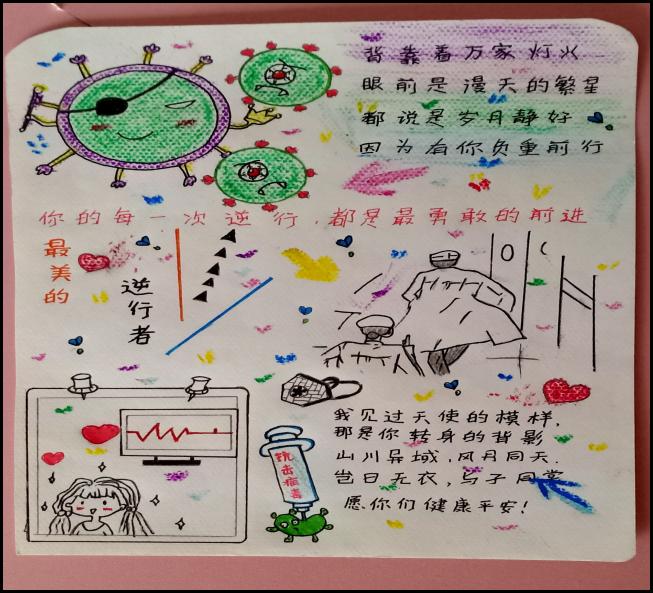 背靠着万家灯火
眼前是漫天的繁星
都说是岁月静好
因为有你负重前行
你的每一次逆行，都是最勇敢的前进
最美的
逆行者
我见过天使的模样，
那是你转身的背影
山川异域，风月同天.
岂曰无衣，与子同裳
愿你们健康平安！
抗击病毒